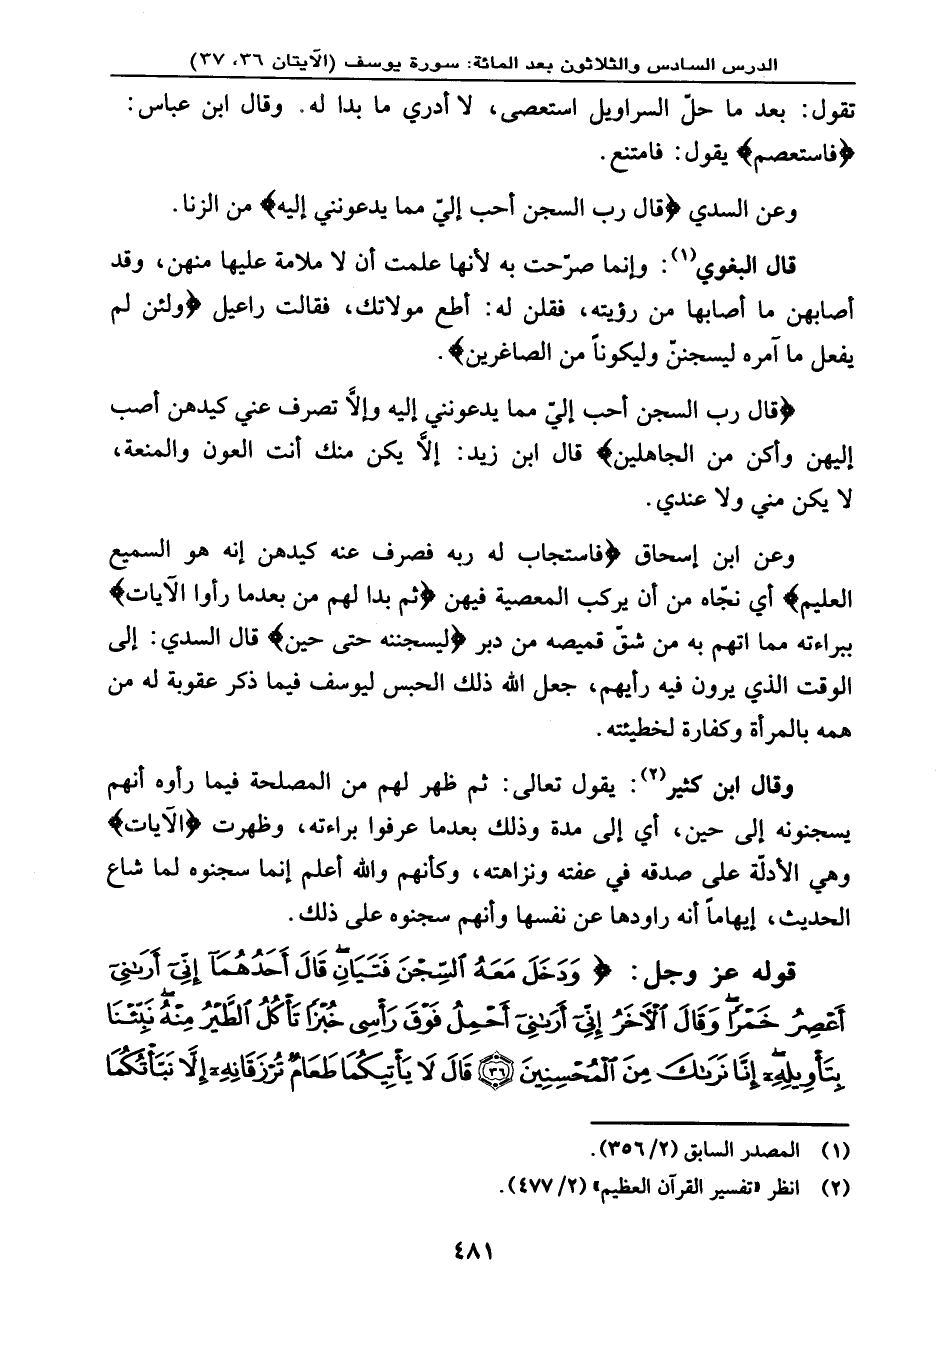 الدرس السادس والثلاثون بعد المائة: سورة يوسف (الآيتان ٣٦، ٣٧)
تقول: بعد ما حلّ السراويل استعصى، لا أدري ما بدا له. وقال ابن عباس:
﴿فاستعصم﴾ يقول: فامتنع.
وعن السدي ﴿قال رب السجن أحب إليّ مما يدعونني إليه﴾ من الزنا.
قال البغوي(١): وإنما صرّحت به لأنها علمت أن لا ملامة عليها منهن، وقد
أصابهن ما أصابها من رؤيته، فقلن له: أطع مولاتك، فقالت راعيل ﴿ولئن لم
يفعل ما آمره ليسجننّ وليكوناً من الصاغرين﴾.
﴿قال رب السجن أحب إليّ مما يدعونني إليه وإلاَّ تصرف عني كيدهن أصب
إليهن وأكن من الجاهلين﴾ قال ابن زيد: إلاَّ يكن منك أنت العون والمنعة،
لا يكن مني ولا عندي.
وعن ابن إسحاق ﴿فاستجاب له ربه فصرف عنه كيدهن إنه هو السميع
العليم﴾ أي نجّاه من أن يركب المعصية فيهن ﴿ثم بدا لهم من بعدما رأوا الآيات﴾
ببراءته مما اتهم به من شقّ قميصه من دبر ﴿ليسجننه حتى حين﴾ قال السدي: إلى
الوقت الذي يرون فيه رأيهم، جعل الله ذلك الحبس ليوسف فيما ذكر عقوبة له من
همه بالمرأة وكفارة لخطيئته.
وقال ابن كثير(٢): يقول تعالى: ثم ظهر لهم من المصلحة فيما رأوه أنهم
يسجنونه إلى حين، أي إلى مدة وذلك بعدما عرفوا براءته، وظهرت ﴿الآيات﴾
وهي الأدلّة على صدقه في عفته ونزاهته، وكأنهم والله أعلم إنما سجنوه لما شاع
الحديث، إيهاماً أنه راودها عن نفسها وأنهم سجنوه على ذلك.
قوله عز وجل: ﴿ وَدَخَلَ مَعَهُ ٱلسِّجْنَ فَتَيَانِۖ قَالَ أَحَدُهُمَآ إِنِّىٓ أَرَىٰنِىٓ
أَعْصِرُ خَمْرًاۖ وَقَالَ ٱلْآخَرُ إِنِّىٓ أَرَىٰنِىٓ أَحْمِلُ فَوْقَ رَأْسِى خُبْزًا تَأْكُلُ ٱلطَّيْرُ مِنْهُۖ نَبِّئْنَا
بِتَأْوِيلِهِۦٓۖ إِنَّا نَرَىٰكَ مِنَ ٱلْمُحْسِنِينَ ٣٦ قَالَ لَا يَأْتِيكُمَا طَعَامٌ تُرْزَقَانِهِۦٓ إِلَّا نَبَّأْتُكُمَا
(١) المصدر السابق (٢/ ٣٥٦).
(٢) انظر «تفسير القرآن العظيم» (٢/ ٤٧٧).
٤٨١